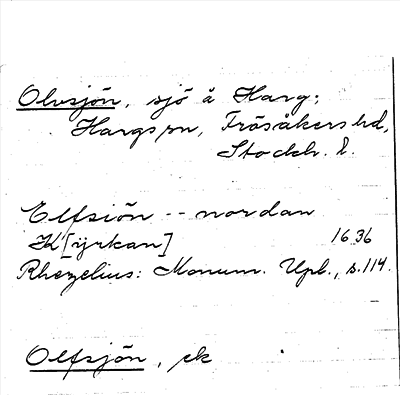 Olvsjön, sjö å Harg;
Hargs sn, Frösåkers hd,
Stockh. l.
Elfsiön -- nordan
K[yrkan] 1636
Rhezelius: Monum. Upl., s. 114.
Olfsjön, ek